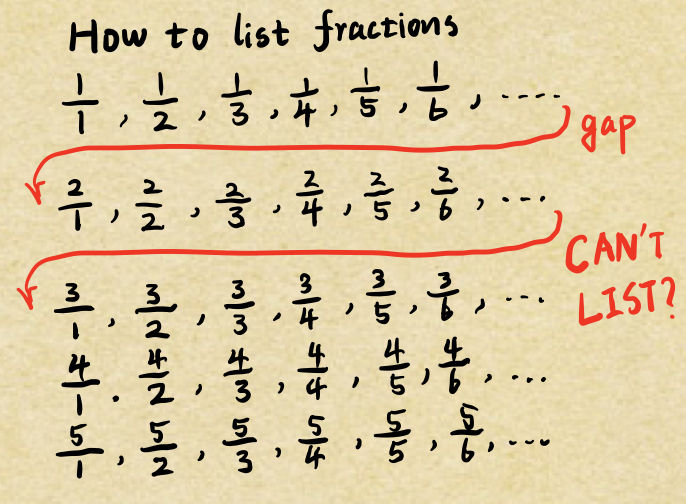 How to list fractions
1/1, 1/2, 1/3, 1/4, 1/5, 1/6, .....
gap
2/1, 2/2, 2/3, 2/4, 2/5, 2/6, ...
CAN'T
LIST?
3/1, 3/2, 3/3, 3/4, 3/5, 3/6, ...
4/1. 4/2, 4/3, 4/4, 4/5, 4/6, ...
5/1, 5/2, 5/3, 5/4, 5/5, 5/6, ...